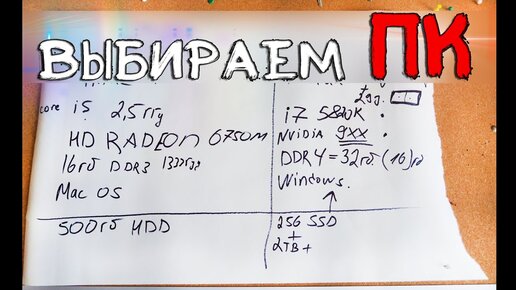 ВЫБИРАЕМ ПК
core i5 2,5ггц
HD RADEON 6750M
16гб DDR3 1333ггц
Mac OS
500гб HDD
i7 5820K
NVIDIA 9XX
DDR4 = 32гб (16)гб
Windows.
256 SSD
+
2TB +